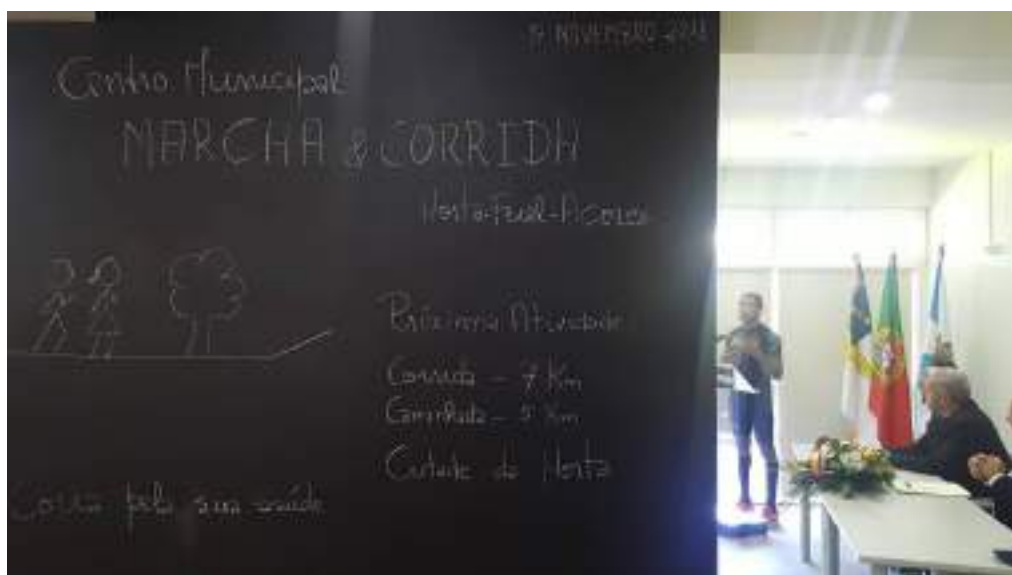 NOVEMBRO
Centro Municipal
MARCHA & CORRIDA
Horta-Faial-Açores
Próxima Atividade
Corrida - 7 Km
Caminhada - 5 Km
Cidade da Horta
Corra pela sua saúde